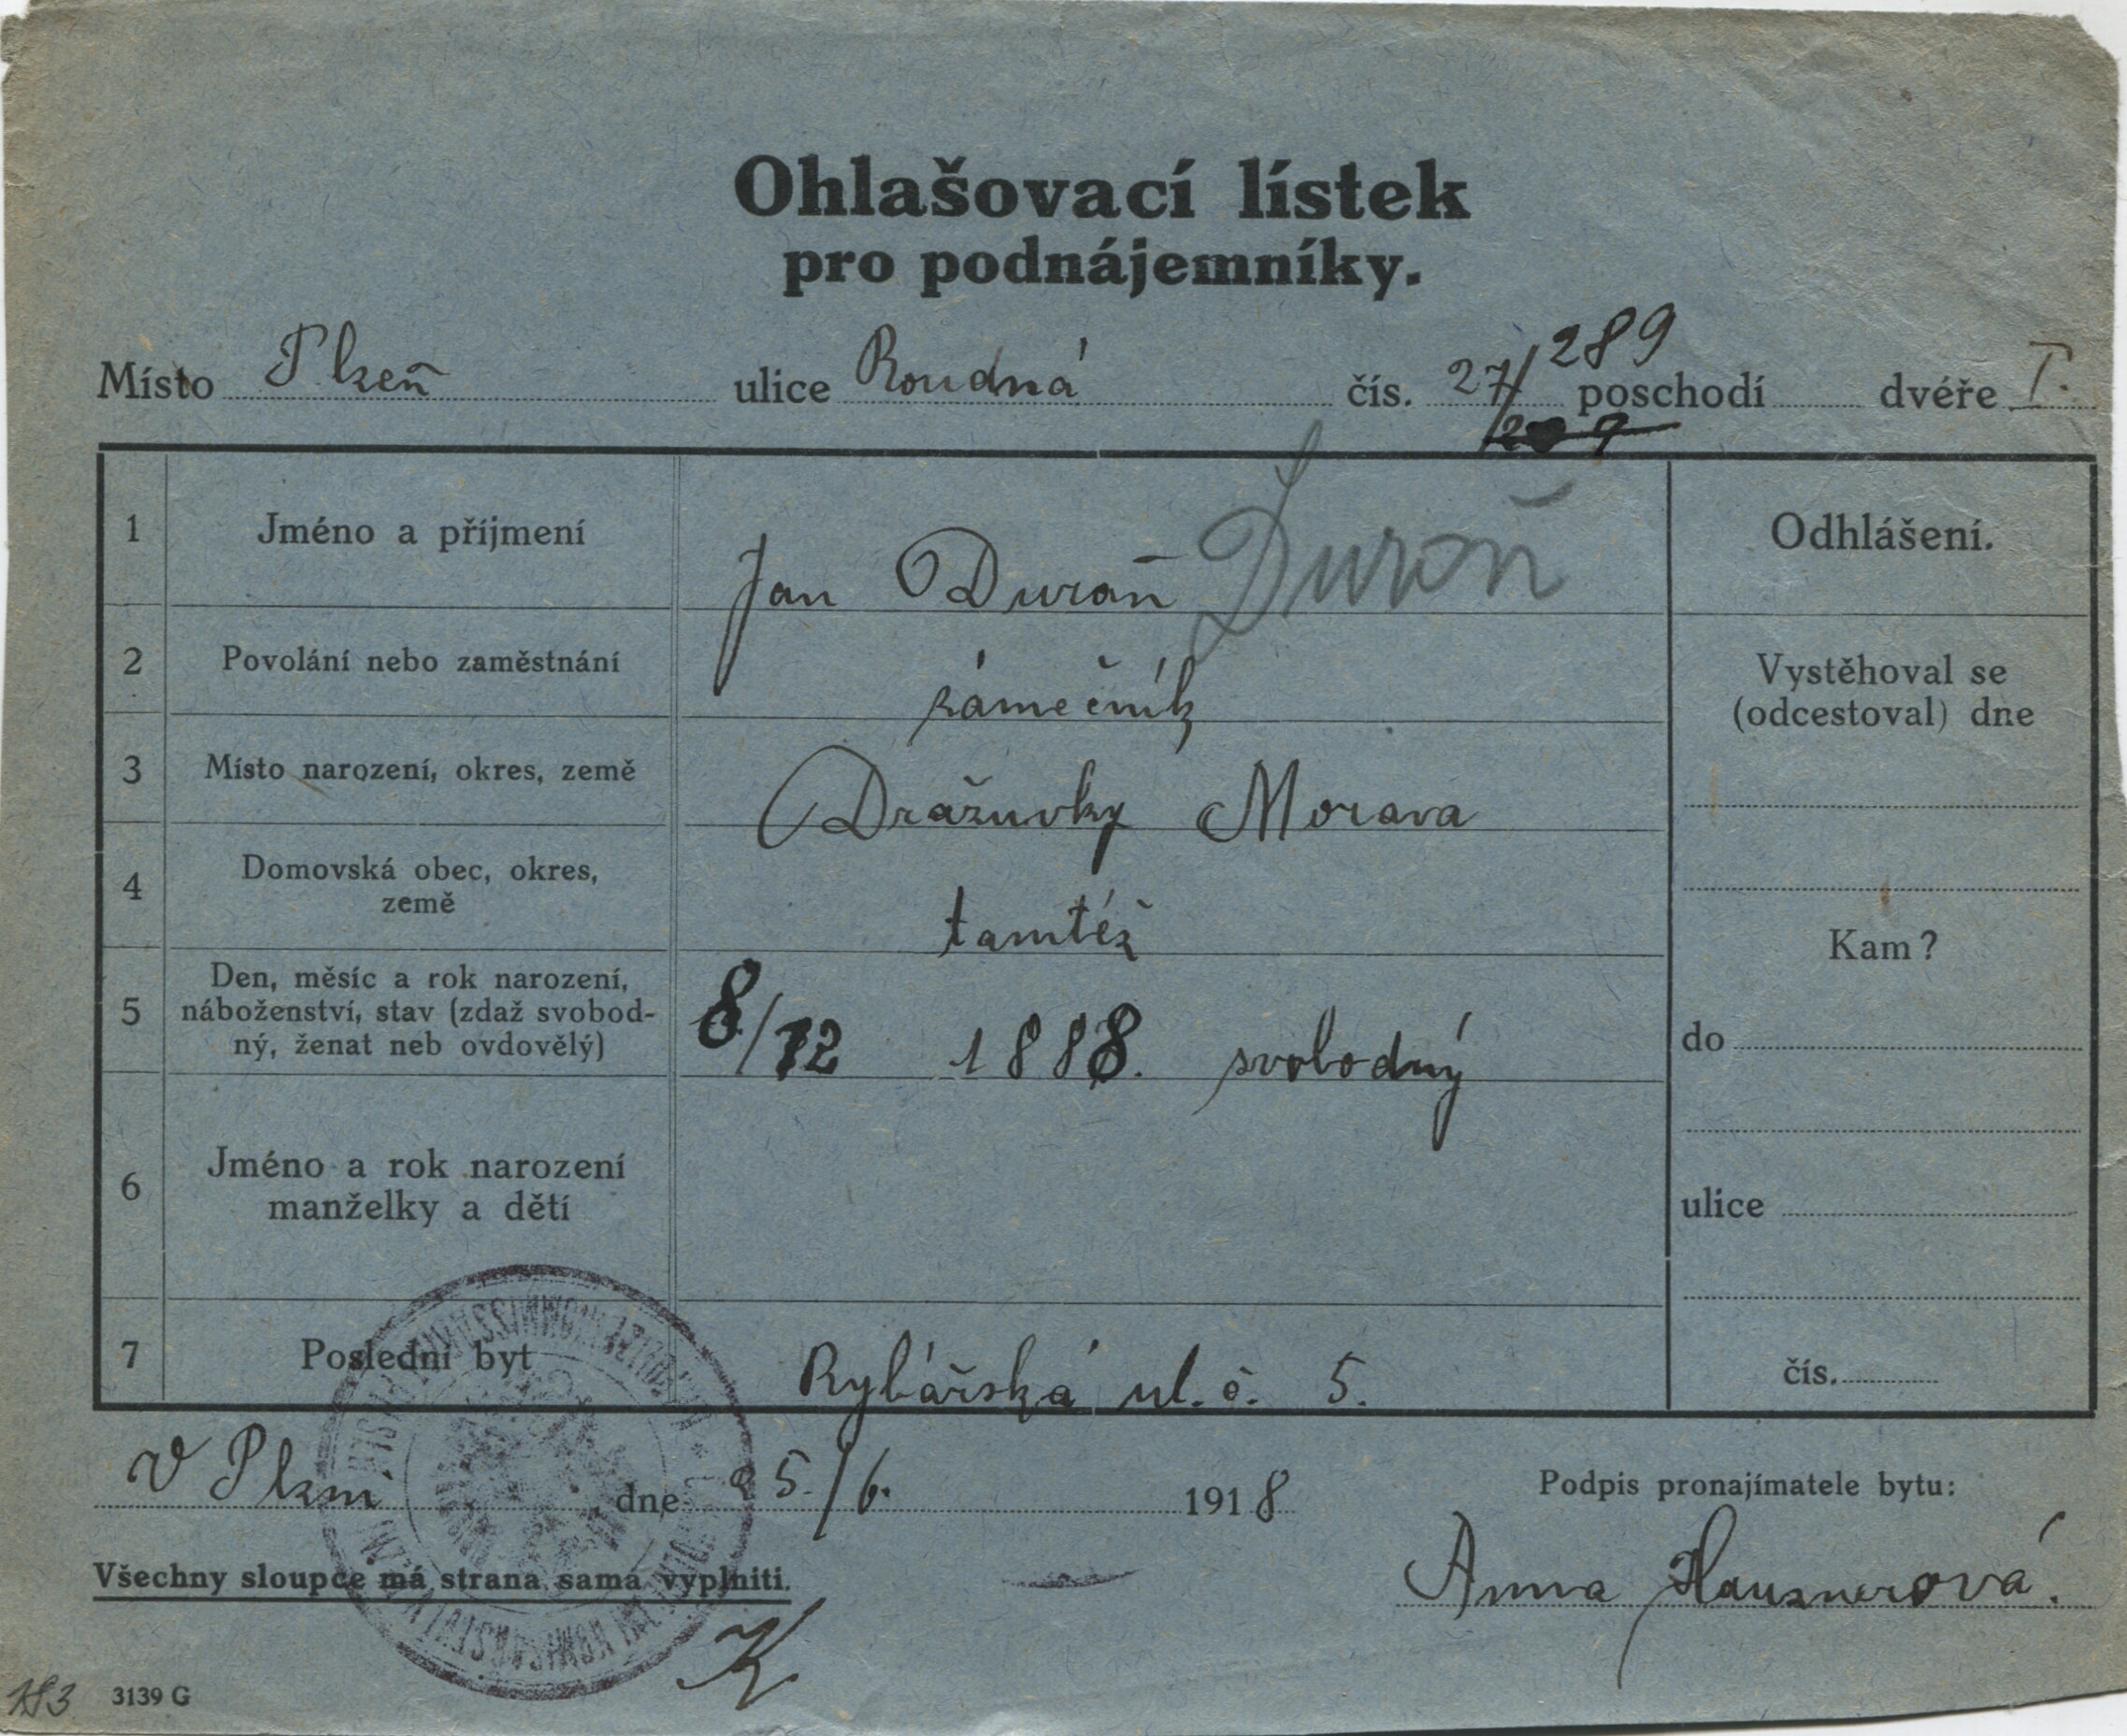 Ohlašovací lístek
pro podnájemníky.
Místo Plzeň ulice Roudná čís. 27/289 poschodí dvéře I.
1 Jméno a příjmení Jan Duroň Ďuroň
Odhlášení.
2 Povolání nebo zaměstnání zámečník
Vystěhoval se
(odcestoval) dne
3 Místo narození, okres, země Dražuvky Morava
4 Domovská obec, okres,
země
tamtéž
Kam?
5 Den, měsíc a rok narození,
náboženství, stav (zdaž svobod-
ný, ženat neb ovdovělý)
8/12 1888. svobodný
do
6 Jméno a rok narození
manželky a dětí
ulice
7 Poslední byt Rybářská ul. č. 5.
čís.
V Plzni dne 25./6. 1918
Podpis pronajímatele bytu:
Anna Hausnerová.
Všechny sloupce má strana sama vyplniti.
183 3139 G